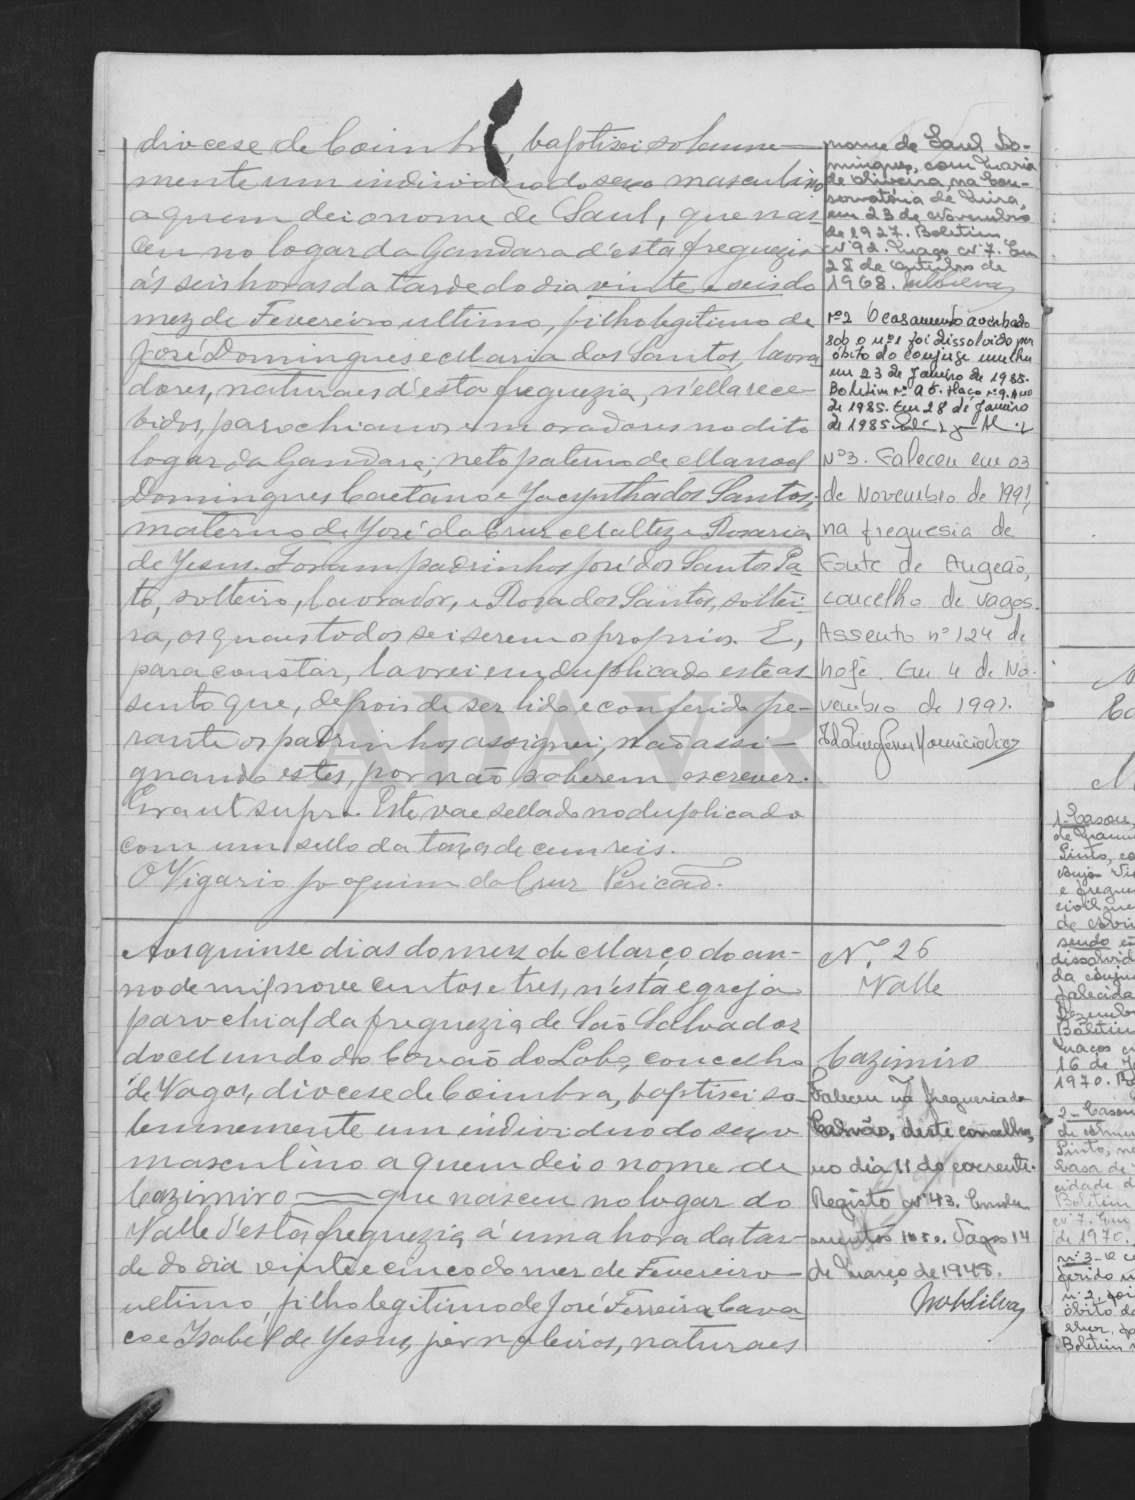 diocese de Coimbra, baptisei solemne-
mente um individuo do sexo masculino
a quem dei o nome de Saul, que nas-
ceu no logar da Gandara d'esta freguezia
ás seis horas da tarde do dia vinte e seis do
mez de Fevereiro ultimo, filho legitimo de
José Domingues e Maria dos Santos, lavra-
dores, naturaes d'esta freguezia, n'ella rece-
bidos, parochianos e moradores no dito
logar da Gandara; neto paterno de Manoel
Domingues Caetano e Jacyntha dos Santos;
materno de José da Cruz Maltez e Rosaria
de Jesus. Foram padrinhos José dos Santos Pa-
tó, solteiro, lavrador, e Rosa dos Santos, soltei-
ra, os quaes todos sei serem os proprios. E,
para constar, lavrei em duplicado este as-
sento que, depois de ser lido e conferido pe-
rante os padrinhos assignei, não assi-
gnando estes, por não saberem escrever.
Era ut supra. Este vae sellado no duplicado
com um sello da taxa de cem reis.
O Vigario Joaquim da Cruz Pericão.
nome de Saul Do-
mingues, com Maria
de Oliveira, na Con-
servatória de Mira,
em 23 de Novembro
de 1927. Boletim
Nº 92. Maço Nº 7. Em
28 de Outubro de
1968.
Nº 2 O casamento averbado
sob o nº 1 foi dissolvido por
óbito do conjuge mulher
em 23 de Janeiro de 1985.
Boletim nº 26. Maço nº 9. Ano
de 1985. Em 28 de Janeiro
de 1985.
Nº 3. Faleceu em 03
de Novembro de 1991,
na freguesia de
Fonte de Angeão,
concelho de Vagos.
Assento nº 124 de
hoje. Em 4 de No-
vembro de 1991.
ADAVR
Aos quinse dias do mez de Março do an-
no de mil nove centos e tres, n'esta egreja
parochial da freguezia de São Salvador
do Mundo do Covão do Lobo, concelho
de Vagos, diocese de Coimbra, baptisei so-
lemnemente um individuo do sexo
masculino a quem dei o nome de
Cazimiro que nasceu no logar do
Valle d'esta freguezia, á uma hora da tar-
de do dia vinte e cinco do mez de Fevereiro
ultimo, filho legitimo de José Ferreira Cava-
co e Isabel de Jesus, jornaleiros, naturaes
N.º 26
Valle
Cazimiro
Faleceu na freguesia de
Calvão, deste concelho,
no dia 11 do corrente.
Registo Nº 43. Emolu-
mentos 10$00. Vagos 14
de Março de 1948.
1-Casou,
Pinto,
e fregue
civilme
sendo
dissolvid
da conju
falecida
Dezembr
Boletim
16 de
1970.
2-Casou
Pinto,
cidade d
Boletim
de 1970.
nº 3-O c
ferido
nº 2, foi
óbito do
Boletim